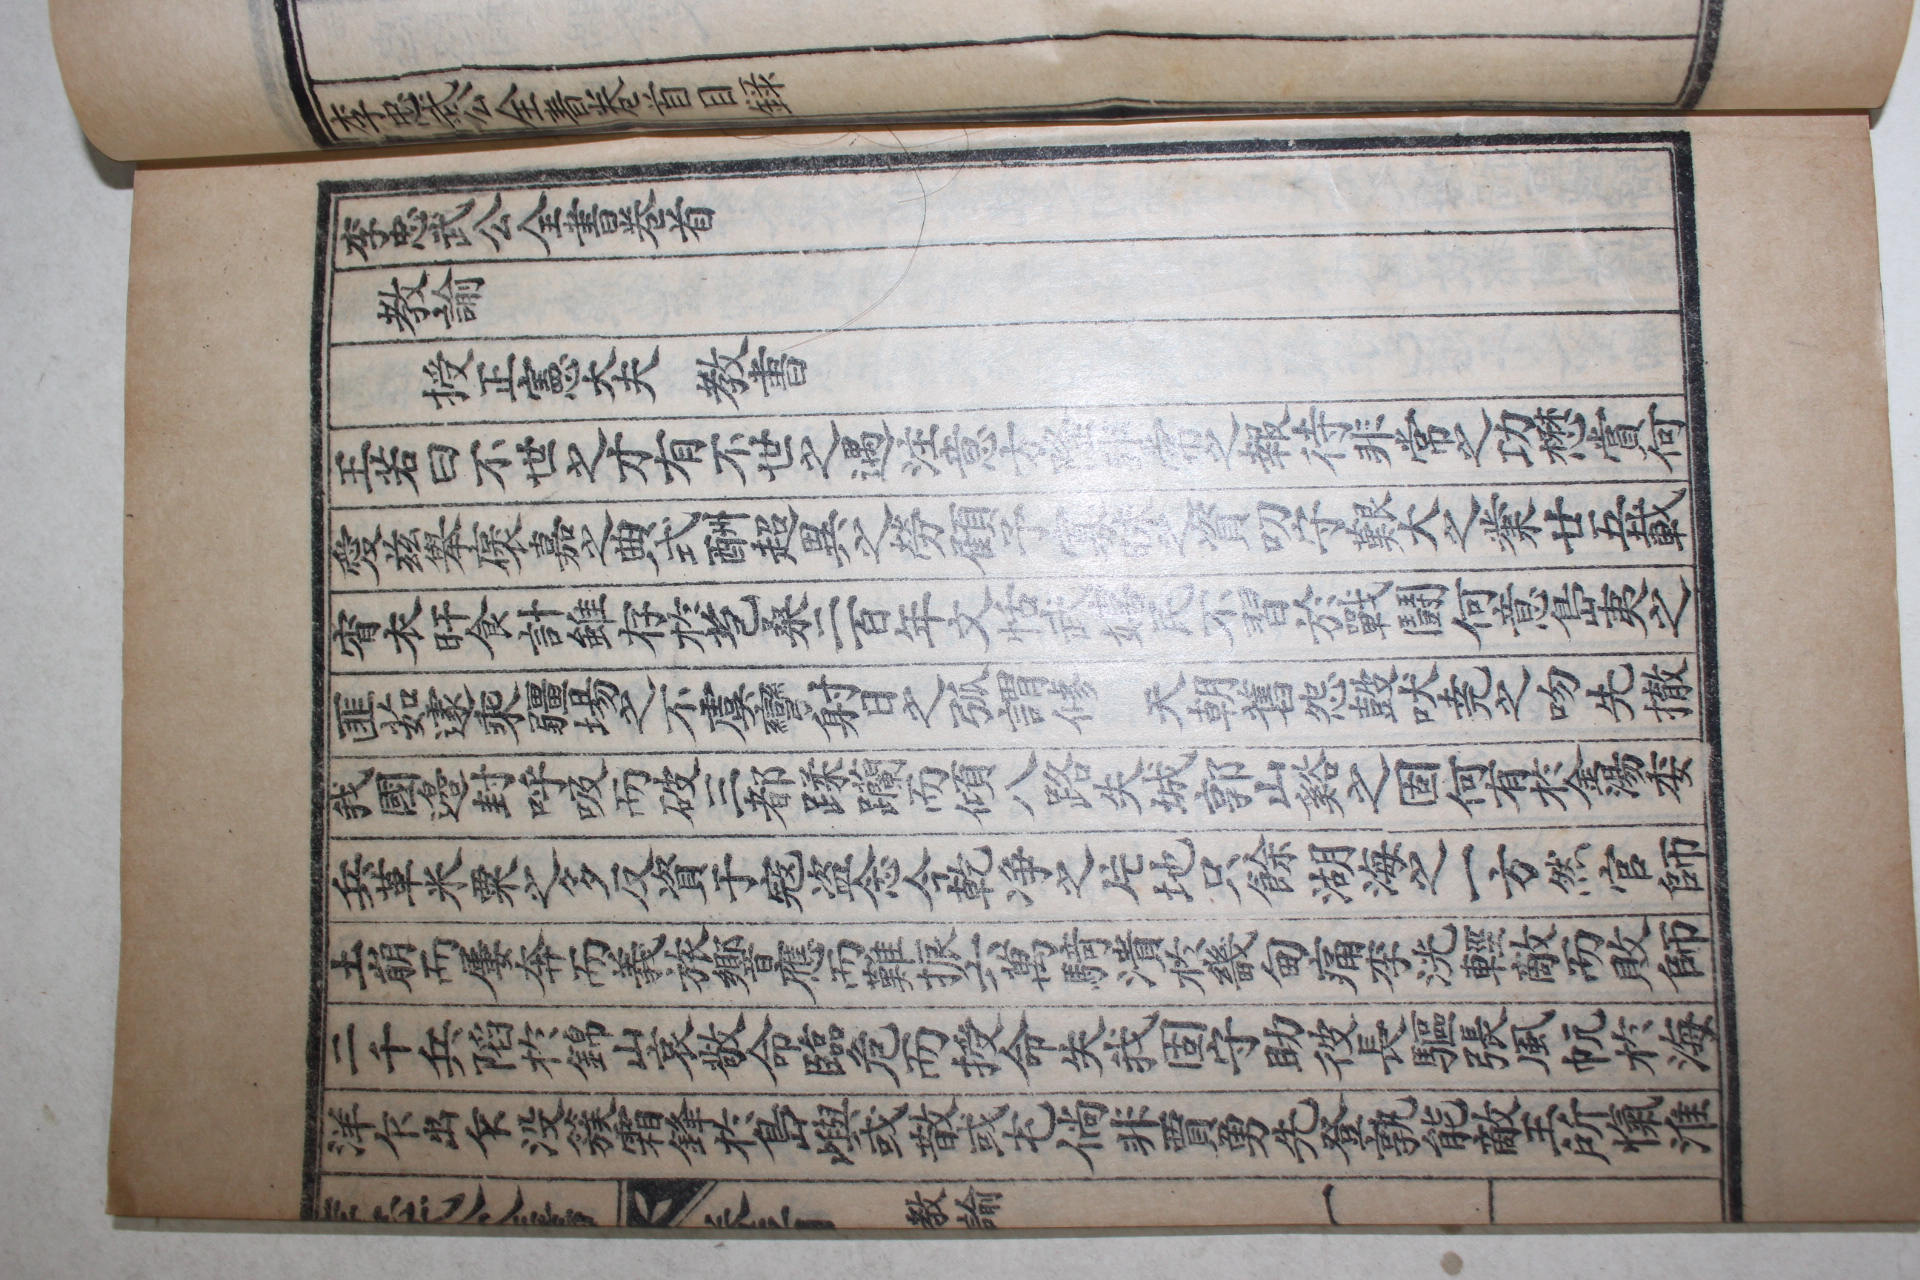 李忠武公全書卷首目録
李忠武公全書卷首
教諭
授正憲大夫 教書
王若曰不世之才有不世之遇注意方隆非常之報待非常之功懋賞何
愛玆擧褒嘉之典式酬超異之勞顧予寡昧之資叨守艱大之業廿五載
宵衣旰食計雖存於苞桑二百年文恬武嬉民不習於戰鬪何意島夷之
匪茹遽乘疆埸之不虞彎射日之弧謂修 天朝舊怨鼓吠堯之吻先撤
我國邊封呼吸而破三都蹂躪而傾八路失城郭山谿之固何有於金湯委
兵革米粟之多反資于寇盜念今乾净之片地只餘湖海之一方然官師
土崩而屢奔而義旅響應而難振六萬騎潰於畿甸痛李洸輕敵而敗師
二千兵陷於錦山哀敬命臨危而授命失我固守助彼長驅張風帆於海
洋乍出乍没簇霜鋒於島嶼或散或屯倘非賈勇先登孰能敵王所愾淮
教諭
一